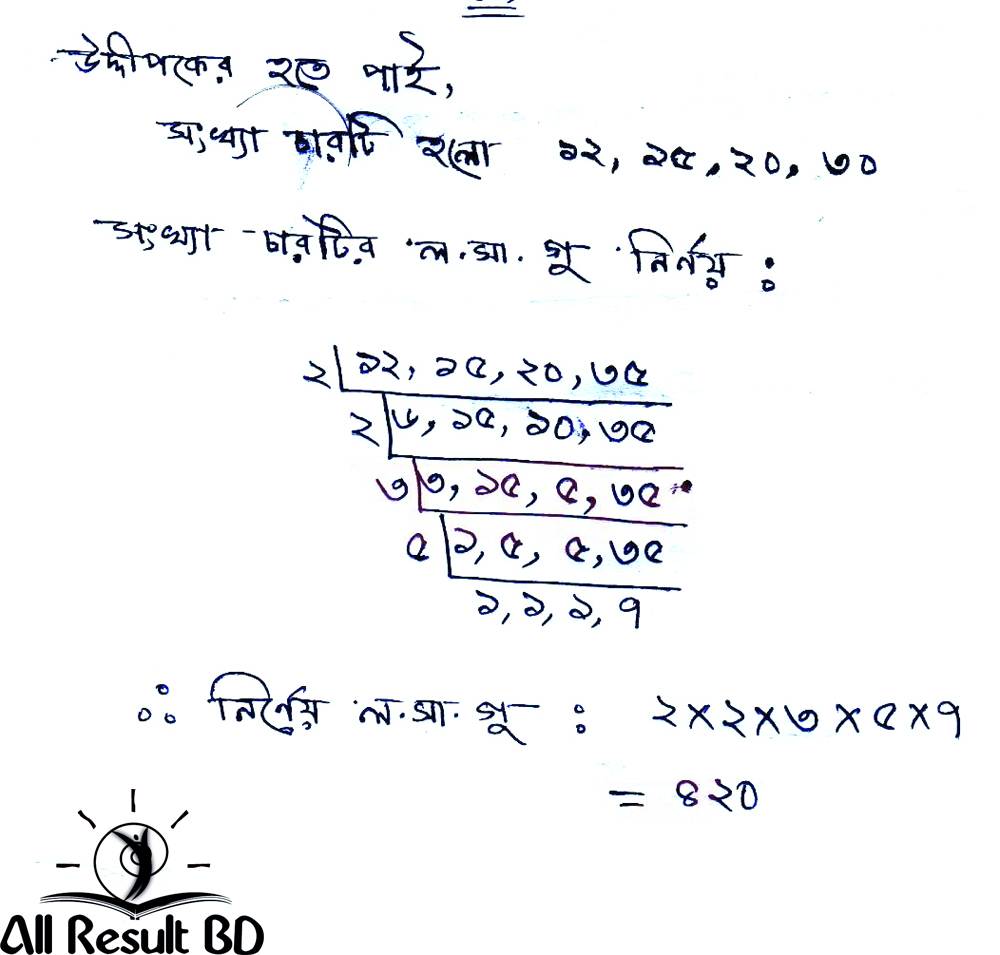 উদ্দীপকের হতে পাই,
সংখ্যা চারটি হলো ১২, ১৫, ২০, ৩০
সংখ্যা চারটির ল.সা.গু নির্নয় :
২ ১২, ১৫, ২০, ৩৫
২ ৬, ১৫, ১০, ৩৫
৩ ৩, ১৫, ৫, ৩৫
৫ ১, ৫, ৫, ৩৫
১, ১, ১, ৭
∴ নির্নেয় ল.সা.গু : ২×২×৩×৫×৭
= ৪২০
All Result BD